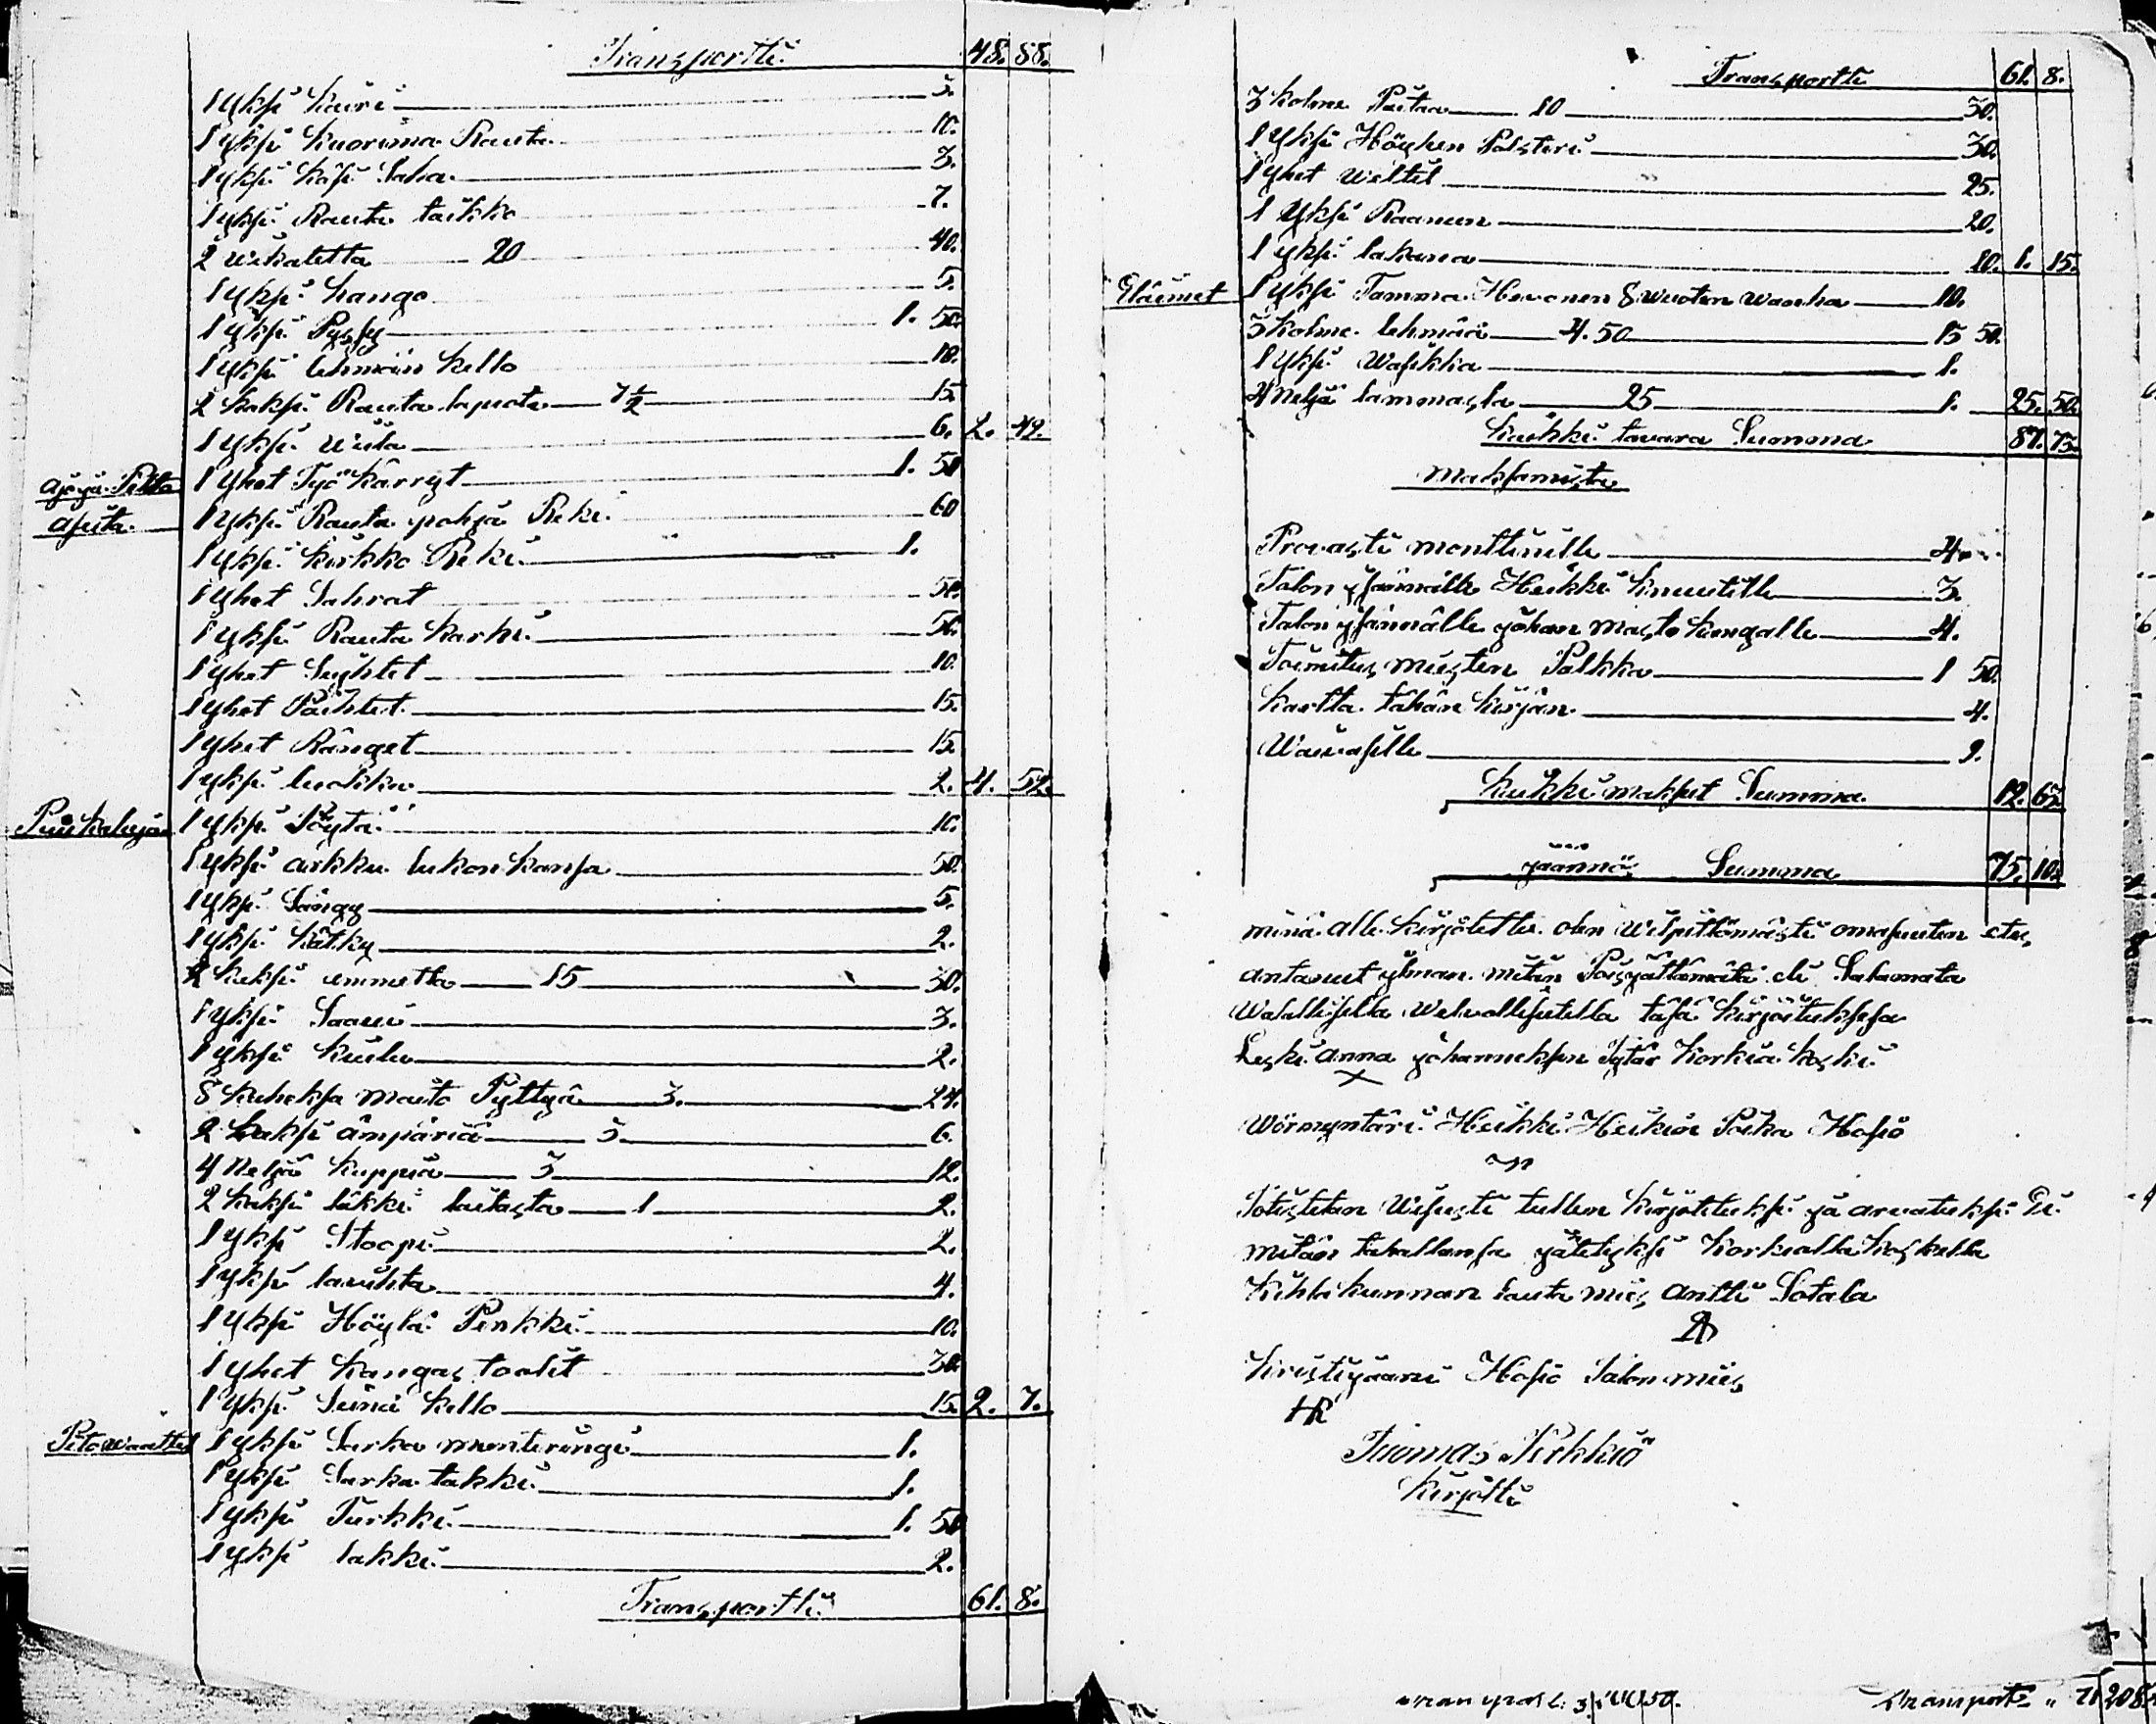 Transportti 48. 88.
1 yksi kuiri 3.
1 yksi kuorima Rauta 10.
1 yksi käsi Saha 3.
1 yksi Rauta taikko 7.
2 wikatetta 20 40.
1 yksi hango 5.
1 yksi Pyssy 1. 50.
1 yksi lehmän kello 10.
2 kaksi Rauta lapiota 7½ 15.
1 yksi wiila 6. 2. 49.
Ajo ja Pelto 1 yhet Työ kärryt 1. 50
Aseita. 1 yksi Rauta pohja Reki 60
1 yksi kirkko Reki 1.
1 yhet Sahrat 50.
1 yksi Rauta karhi 50.
1 yhet Suihtet 10.
1 yhet Päihtet 15.
1 yhet Ränget 15.
1 yksi luokka 2. 4. 52.
Puu kaluja 1 yksi Pöytä 10.
1 yksi arkku lukon kansa 50.
1 yksi Sängy 5.
1 yksi kätky 2.
2 kaksi ammetta 15 30.
1 yksi Saavi 3.
1 yksi kiulu 2.
8 kaheksa maito Pyttyä 3. 24.
2 kaksi ämpäriä 3 6.
4 Neljä kuppia 3 12.
2 kaksi läkki lautasta 1 2.
1 yksi Stoopi 2.
1 yksi lawihta 4.
1 yksi Höylä Penkki 10.
1 yhet kangas toolit 30.
1 yksi Seinä kello 15. 2. 7.
Pito waattet 1 yksi Sarka monteringi 1.
1 yksi Sarka takki 1.
1 yksi Turkki 1. 50
1 yksi lakki 2.
Transportti 61. 8.
Transportti 61. 8.
3 kolme Paitaa 10 30.
1 yksi Höyhen Polsteri 30.
1 yhet weltit 25.
1 yksi Raanun 20.
1 yksi lakana 10. 1. 15.
Eläimet 1 yksi Tamma Hewonen 8 wuoten wanha 10.
3 kolme lehmää 4.50 13 50.
1 yksi Wasikka 1.
4 Neljä lammasta 25 1. 25. 50.
kaikki tawara Summa 87. 73.
maksamista
Prowasti monttinille 4
Talon ysännälle Heikki kinuutille 3.
Talon ysännälle Johan masto kungalle 4.
Toimitus miesten Palkka 1 50.
kartta tähän kirjän 4.
Waiwasille 9.
kaikki maksut Summa 12. 63.
jäännö Summa 75. 10.
minä alle kirjotettu olen wilpittömästi omasuuten etes
antanut ylman mitän Poisjättämätä eli Salamata
walallisella welwollisutella täsä kirjoituksesa
Leski Anna Johanneksen Tytär Korkia koski
X
Wörmyntäri Heikki Heikin Poika Hosio
Totistetan wisusti tullen kirjoitetuksi ja arwatuksi Ei
mitän tahallansa jätetyksi Korkialla koskella
Kihlakunnan lauta mies Antti Sotala
Kristijaani Hosio Talon mies
HR
Tuomas Pirkkiö
kirjotti
Transport